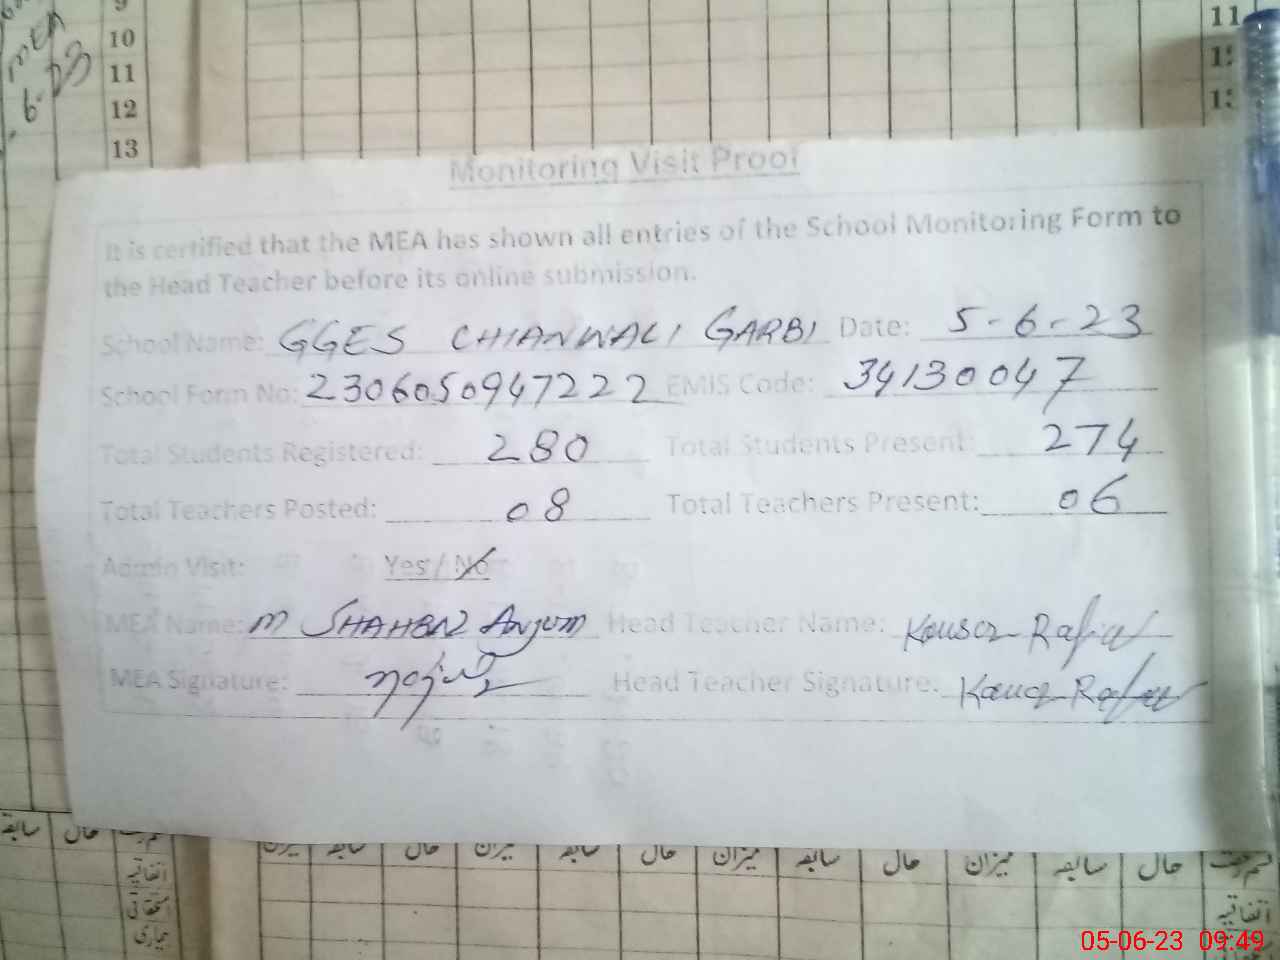 MEA
6.23
9
10
11
12
13
11
Monitoring Visit Proof
It is certified that the MEA has shown all entries of the School Monitoring Form to
the Head Teacher before its online submission.
School Name: GGES CHIANWALI GARBI Date: 5-6-23
School Form No: 2306050947222 EMIS Code: 34130047
Total Students Registered: 280 Total Students Present: 274
Total Teachers Posted: 08 Total Teachers Present: 06
Admin Visit: Yes / No
MEA Name: M SHAHBAZ Anjum Head Teacher Name: Kousar
MEA Signature: Head Teacher Signature:
سابقہ حال میزان سابقہ حال میزان سابقہ حال میزان سابقہ حال
اتفاقیہ
استحقاقی
بیماری
اتفاقیہ
05-06-23 09:49